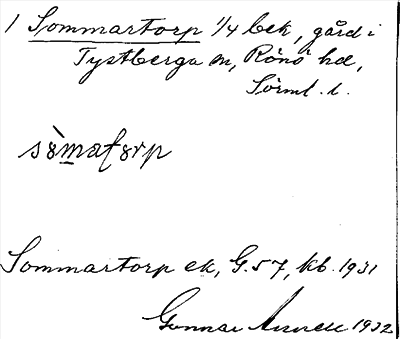 1 Sommartorp 1/4 bek, gård i
Tystberga sn, Rönö hd,
Sörml. l.
sòmatorp
Sommartorp ek, G.57, kb. 1931
Gunnar 1932